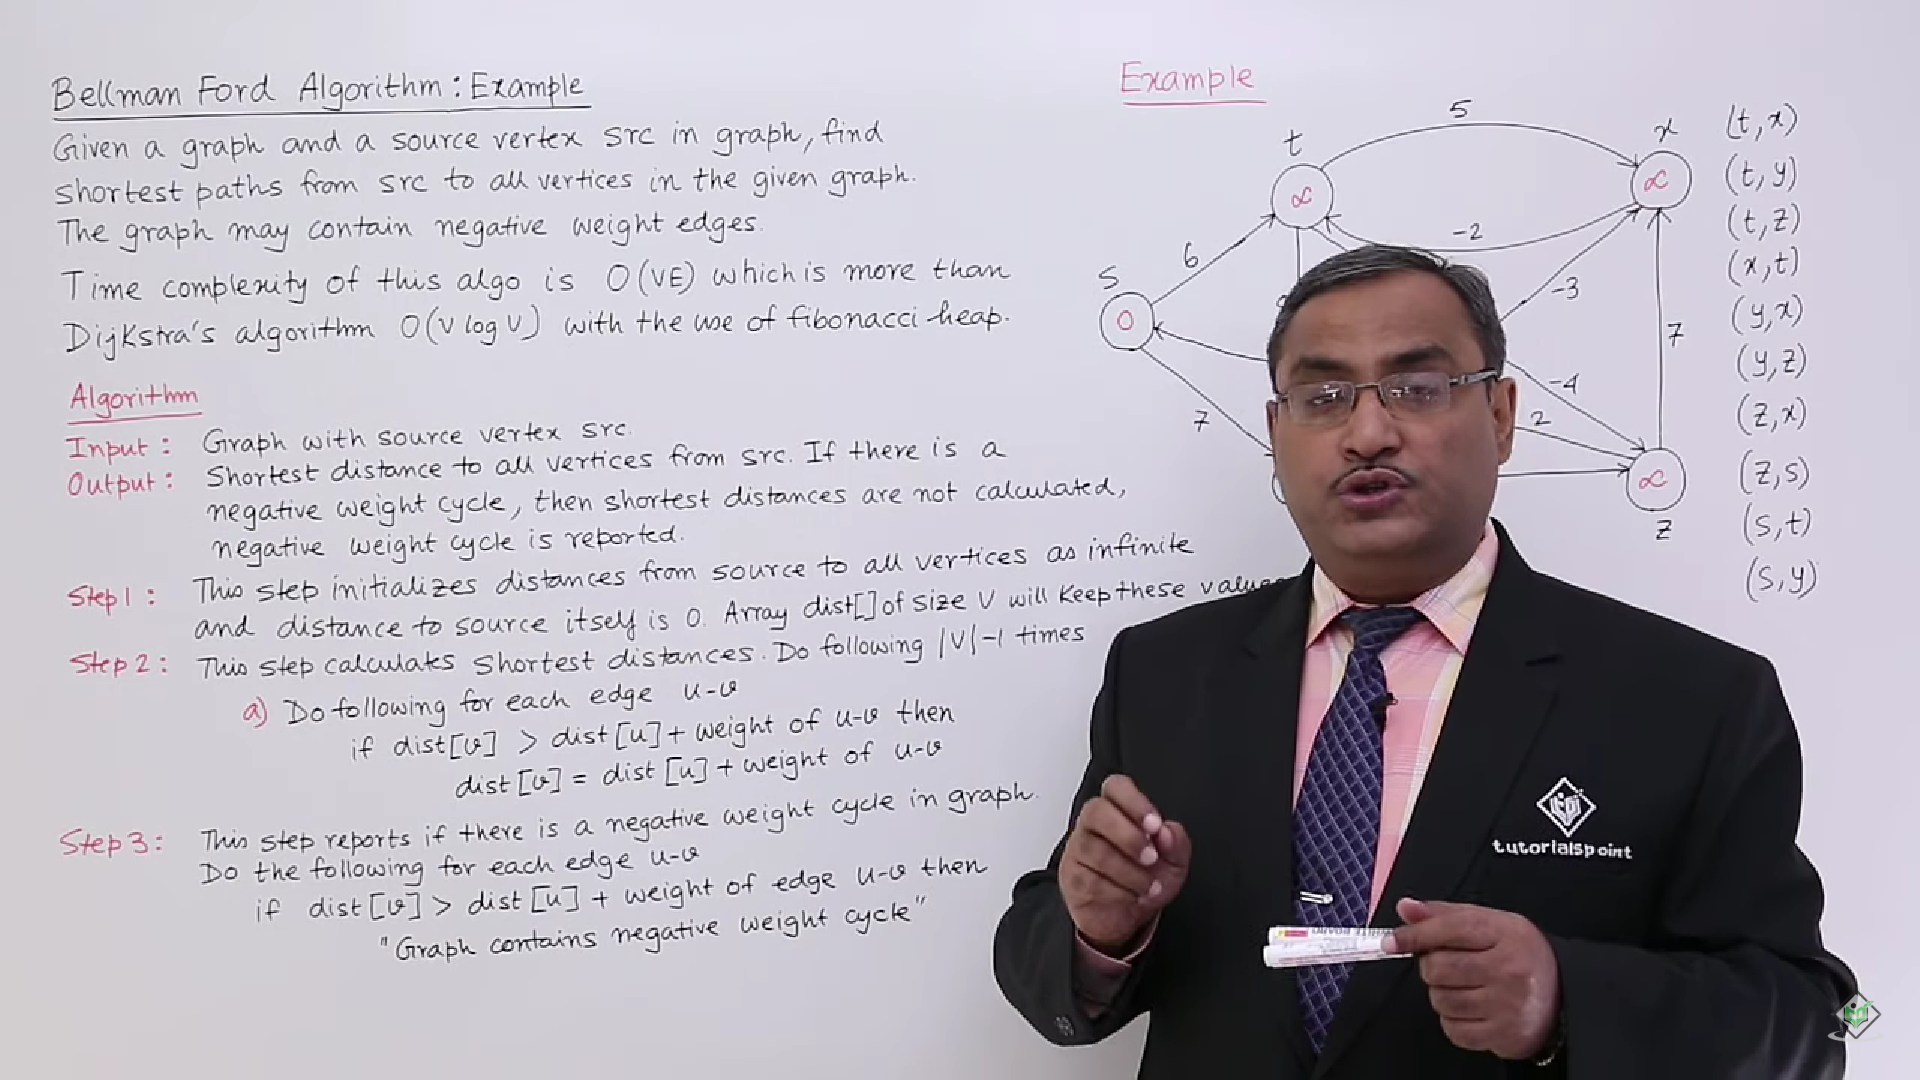 Bellman Ford Algorithm: Example
Given a graph and a source vertex src in graph, find
shortest paths from src to all vertices in the given graph.
The graph may contain negative weight edges.
Time complexity of this algo is O(VE) which is more than
Dijkstra's algorithm O(V log V) with the use of fibonacci heap.
Algorithm
Input: Graph with source vertex src.
Output: Shortest distance to all vertices from src. If there is a
negative weight cycle, then shortest distances are not calculated,
negative weight cycle is reported.
Step 1: This step initializes distances from source to all vertices as infinite
and distance to source itself is 0. Array dist[] of size V will keep these values
Step 2: This step calculates shortest distances. Do following |V|-1 times
a) Do following for each edge u-v
if dist[v] > dist[u] + weight of u-v then
dist[v] = dist[u] + weight of u-v
Step 3: This step reports if there is a negative weight cycle in graph.
Do the following for each edge u-v
if dist[v] > dist[u] + weight of edge u-v then
"Graph contains negative weight cycle"
Example
5
t
x
∝
∝
-2
6
S
-3
0
7
-4
7
2
∝
z
(t,x)
(t,y)
(t,z)
(x,t)
(y,x)
(y,z)
(z,x)
(z,s)
(s,t)
(s,y)
tutorialspoint